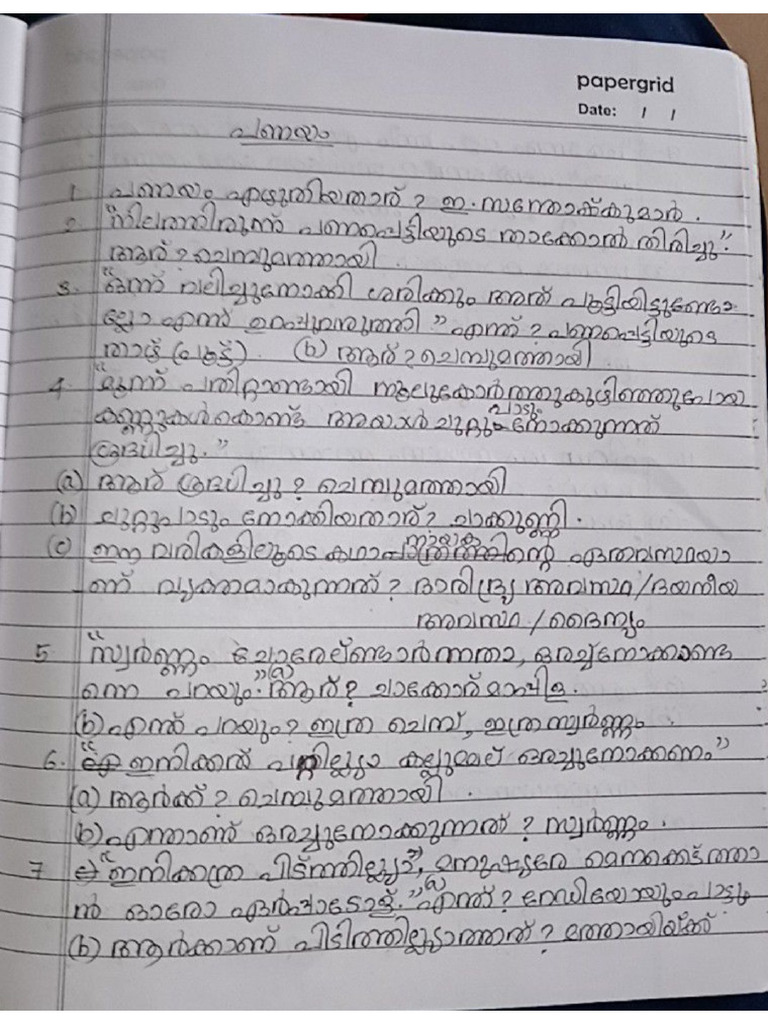 papergrid
Date: / /
പണയം
1. പണയം എഴുതിയതാര് ? ഇ. സന്തോഷ്കുമാർ .
2. "നിലത്തിരുന്ന് പണപ്പെട്ടിയുടെ താക്കോൽ തിരിച്ചു".
ആര് ? ചെമ്പുമത്തായി .
3. "ഒന്ന് വലിച്ചുനോക്കി ശരിക്കും അത് പൂട്ടിയിട്ടുണ്ടോ
ല്ലോ എന്ന് ഉറപ്പുവരുത്തി " എന്ത് ? പണപ്പെട്ടിയുടെ
താഴ് (പൂട്ട്) . (b) ആര് ? ചെമ്പുമത്തായി
4. "മൂന്ന് പതിറ്റാണ്ടായി നൂലുകോർത്തുകുഴിഞ്ഞുപോയ
കണ്ണുകൾകൊണ്ട് അയാൾ ചുറ്റുംപാടും നോക്കുന്നത്
ശ്രദ്ധിച്ചു."
(a) ആര് ശ്രദ്ധിച്ചു ? ചെമ്പുമത്തായി
(b) ചുറ്റുപാടും നോക്കിയതാര് ? ചാക്കുണ്ണി .
(c) ഈ വരികളിലൂടെ കഥാ ഏതവസ്ഥയാ
ണ് വ്യക്തമാകുന്നത് ? ദാരിദ്ര്യ അവസ്ഥ / ദയനീയ
അവസ്ഥ / ദൈന്യം
5. "സ്വർണ്ണം ചോരേല്ണ്ടാർന്നതാ, ഒരച്ച്നോക്കാണ്ട
ന്നെ പറയും." (a) ആര് ? ചാക്കോര്മാപ്പിള .
(b) എന്ത് പറയും ? ഇത്ര ചെമ്പ്, ഇത്ര സ്വർണ്ണം .
6. "ഇനിക്കത് പറ്റില്ല്യാ കല്ലുമ്മല് ഒരച്ചുനോക്കണം"
(a) ആർക്ക് ? ചെമ്പുമത്തായി .
(b) എന്താണ് ഒരച്ചുനോക്കുന്നത് ? സ്വർണ്ണം .
7. "ഇനിക്കത്ര പിടിത്തില്ല്യാ, മനുഷ്യരെ മെനക്കെടുത്താ
ൻ ഓരോ ഏർപ്പാടോള്." (a) എന്ത് ? റേഡിയോയുംപാട്ടും
(b) ആർക്കാണ് പിടിത്തില്ല്യാത്തത് ? മത്തായിയ്ക്ക്